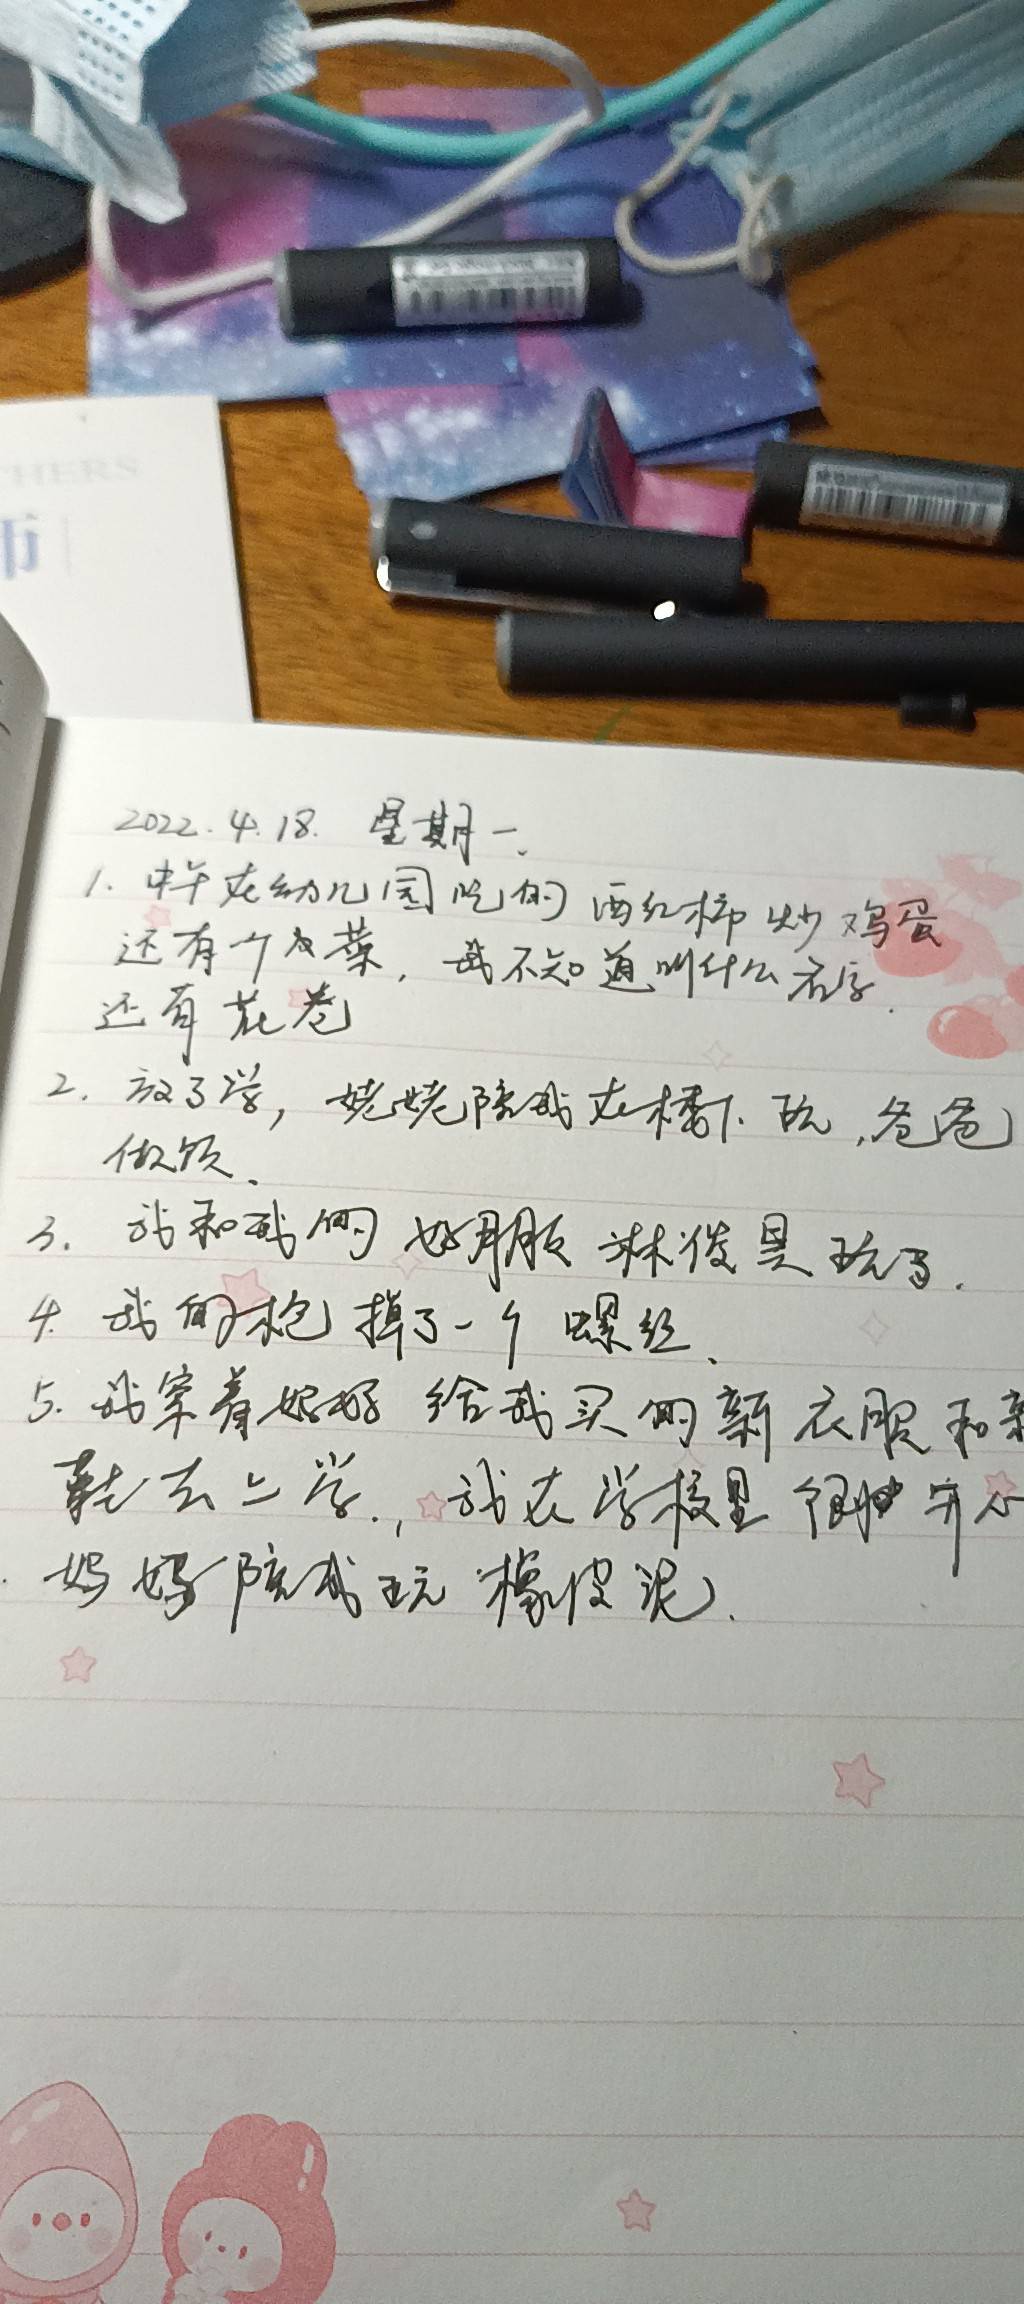 THERS
师
2022.4.18. 星期一.
1. 中午在幼儿园吃的西红柿炒鸡蛋
还有一个菜，我不知道叫什么名字.
还有花卷
2. 放了学，姥姥陪我在楼下玩，爸爸
做饭、
3. 我和我的好朋友林俊昊玩了.
4. 我的枪掉了一个螺丝、
5. 我穿着妈妈给我买的新衣服和新
鞋去上学.，我在学校里很开心
妈妈陪我玩橡皮泥.